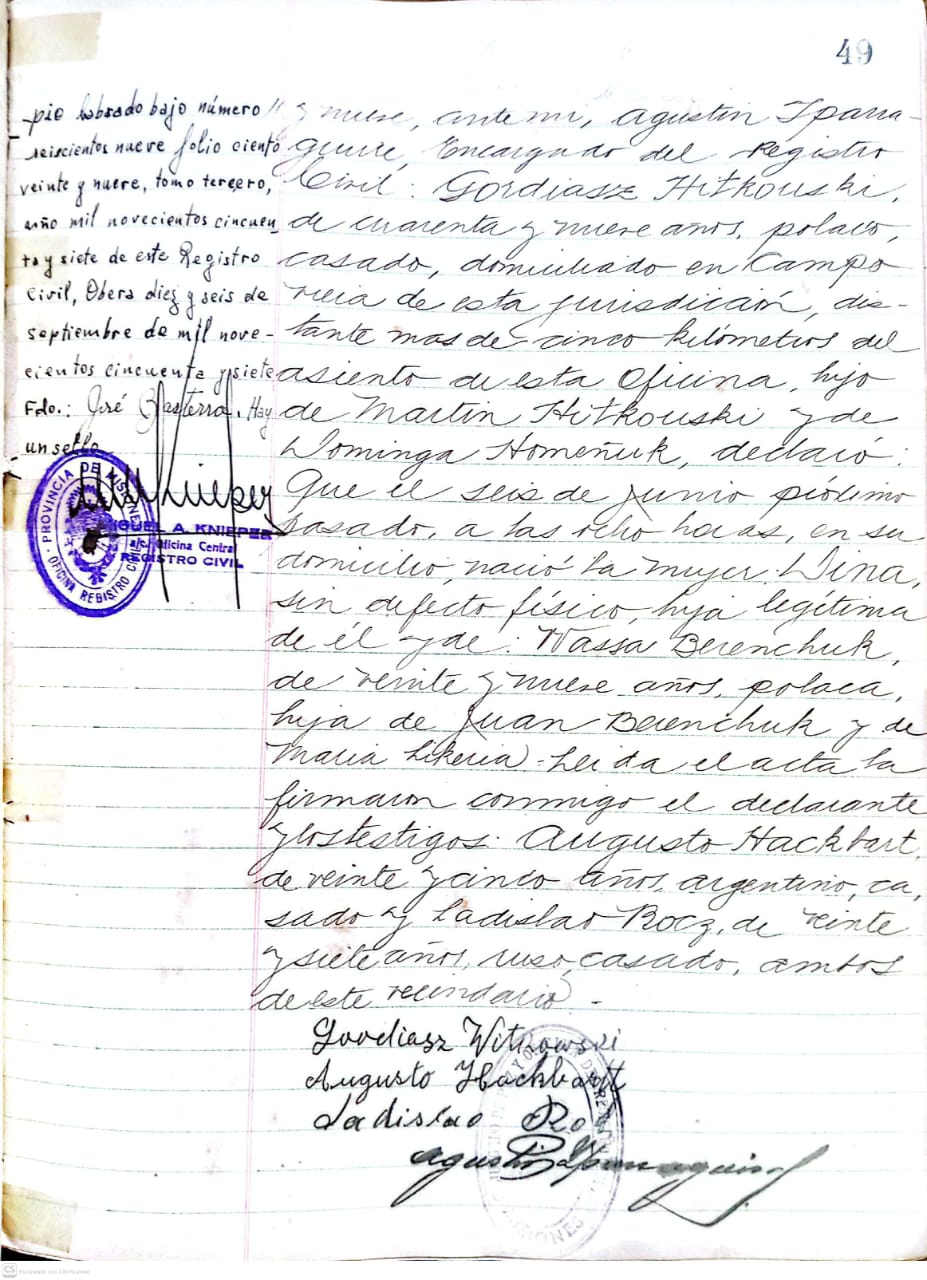 49
pio labrado bajo número
seiscientos nueve folio ciento
veinte y nueve, tomo tercero,
año mil novecientos cincuen
ta y siete de este Registro
Civil, Oberá diez y seis de
septiembre de mil nove-
cientos cincuenta y siete
Fdo.: José Basterra. Hay
un sello
PROVINCIA DE MISIONES
OFICINA REGISTRO
MIGUEL A. KNIEPER
a/c. Oficina Central
REGISTRO CIVIL
y nueve, ante mi, Agustin Iparra-
guirre, Encargado del Registro
Civil: Gordiasz Hitkouski,
de cuarenta y nueve años, polaco,
casado, domiciliado en Campo
Viera de esta jurisdicción, dis-
tante mas de cinco kilómetros del
asiento de esta Oficina, hijo
de Martin Hitkouski y de
Dominga Homeñuk, declaró:
Que el seis de Junio próximo
pasado, a las ocho horas, en su
domicilio, nació la mujer: Dina,
sin defecto físico, hija legítima
de él y de: Wassa Berenchuk,
de veinte y nueve años, polaca,
hija de Juan Berenchuk y de
Maria Likeria - Leida el acta la
firmaron conmigo el declarante
y los testigos: Augusto Hackbart,
de veinte y cinco años, argentino, ca-
sado y Ladislao Rocz, de veinte
y siete años, ruso, casado, ambos
de este vecindario -
Gordiasz Witkowski
Augusto Hackbartt
Ladislao
Agustin Iparraguirre
CS Escaneado con CamScanner